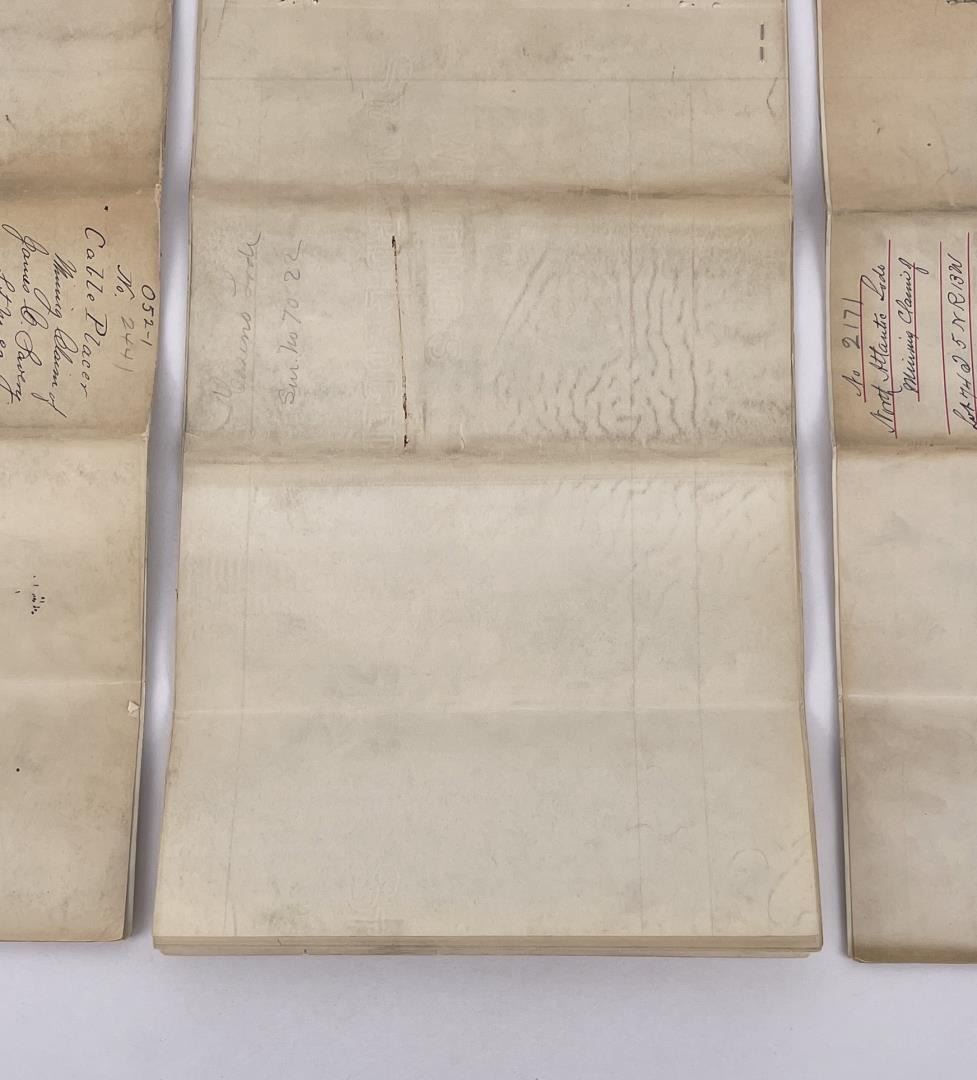 052-1
No. 2441
Cable Placer
Mining Claim of
James
Lode
Sur. No 7022
No 2171
North Atlantic Lode
Mining Claim
5 N R 13 W